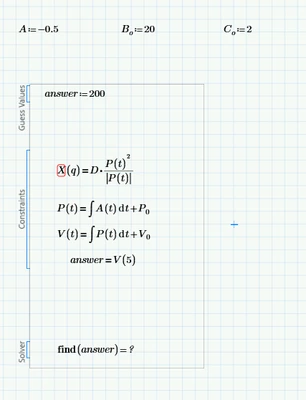 A:=-0.5 B₀:=20 C₀:=2
Guess Values
answer:=200
Constraints
X(q)=D·P(t)²/|P(t)|
P(t)=∫A(t) dt+P₀
V(t)=∫P(t) dt+V₀
answer=V(5)
Solver
find(answer)=?